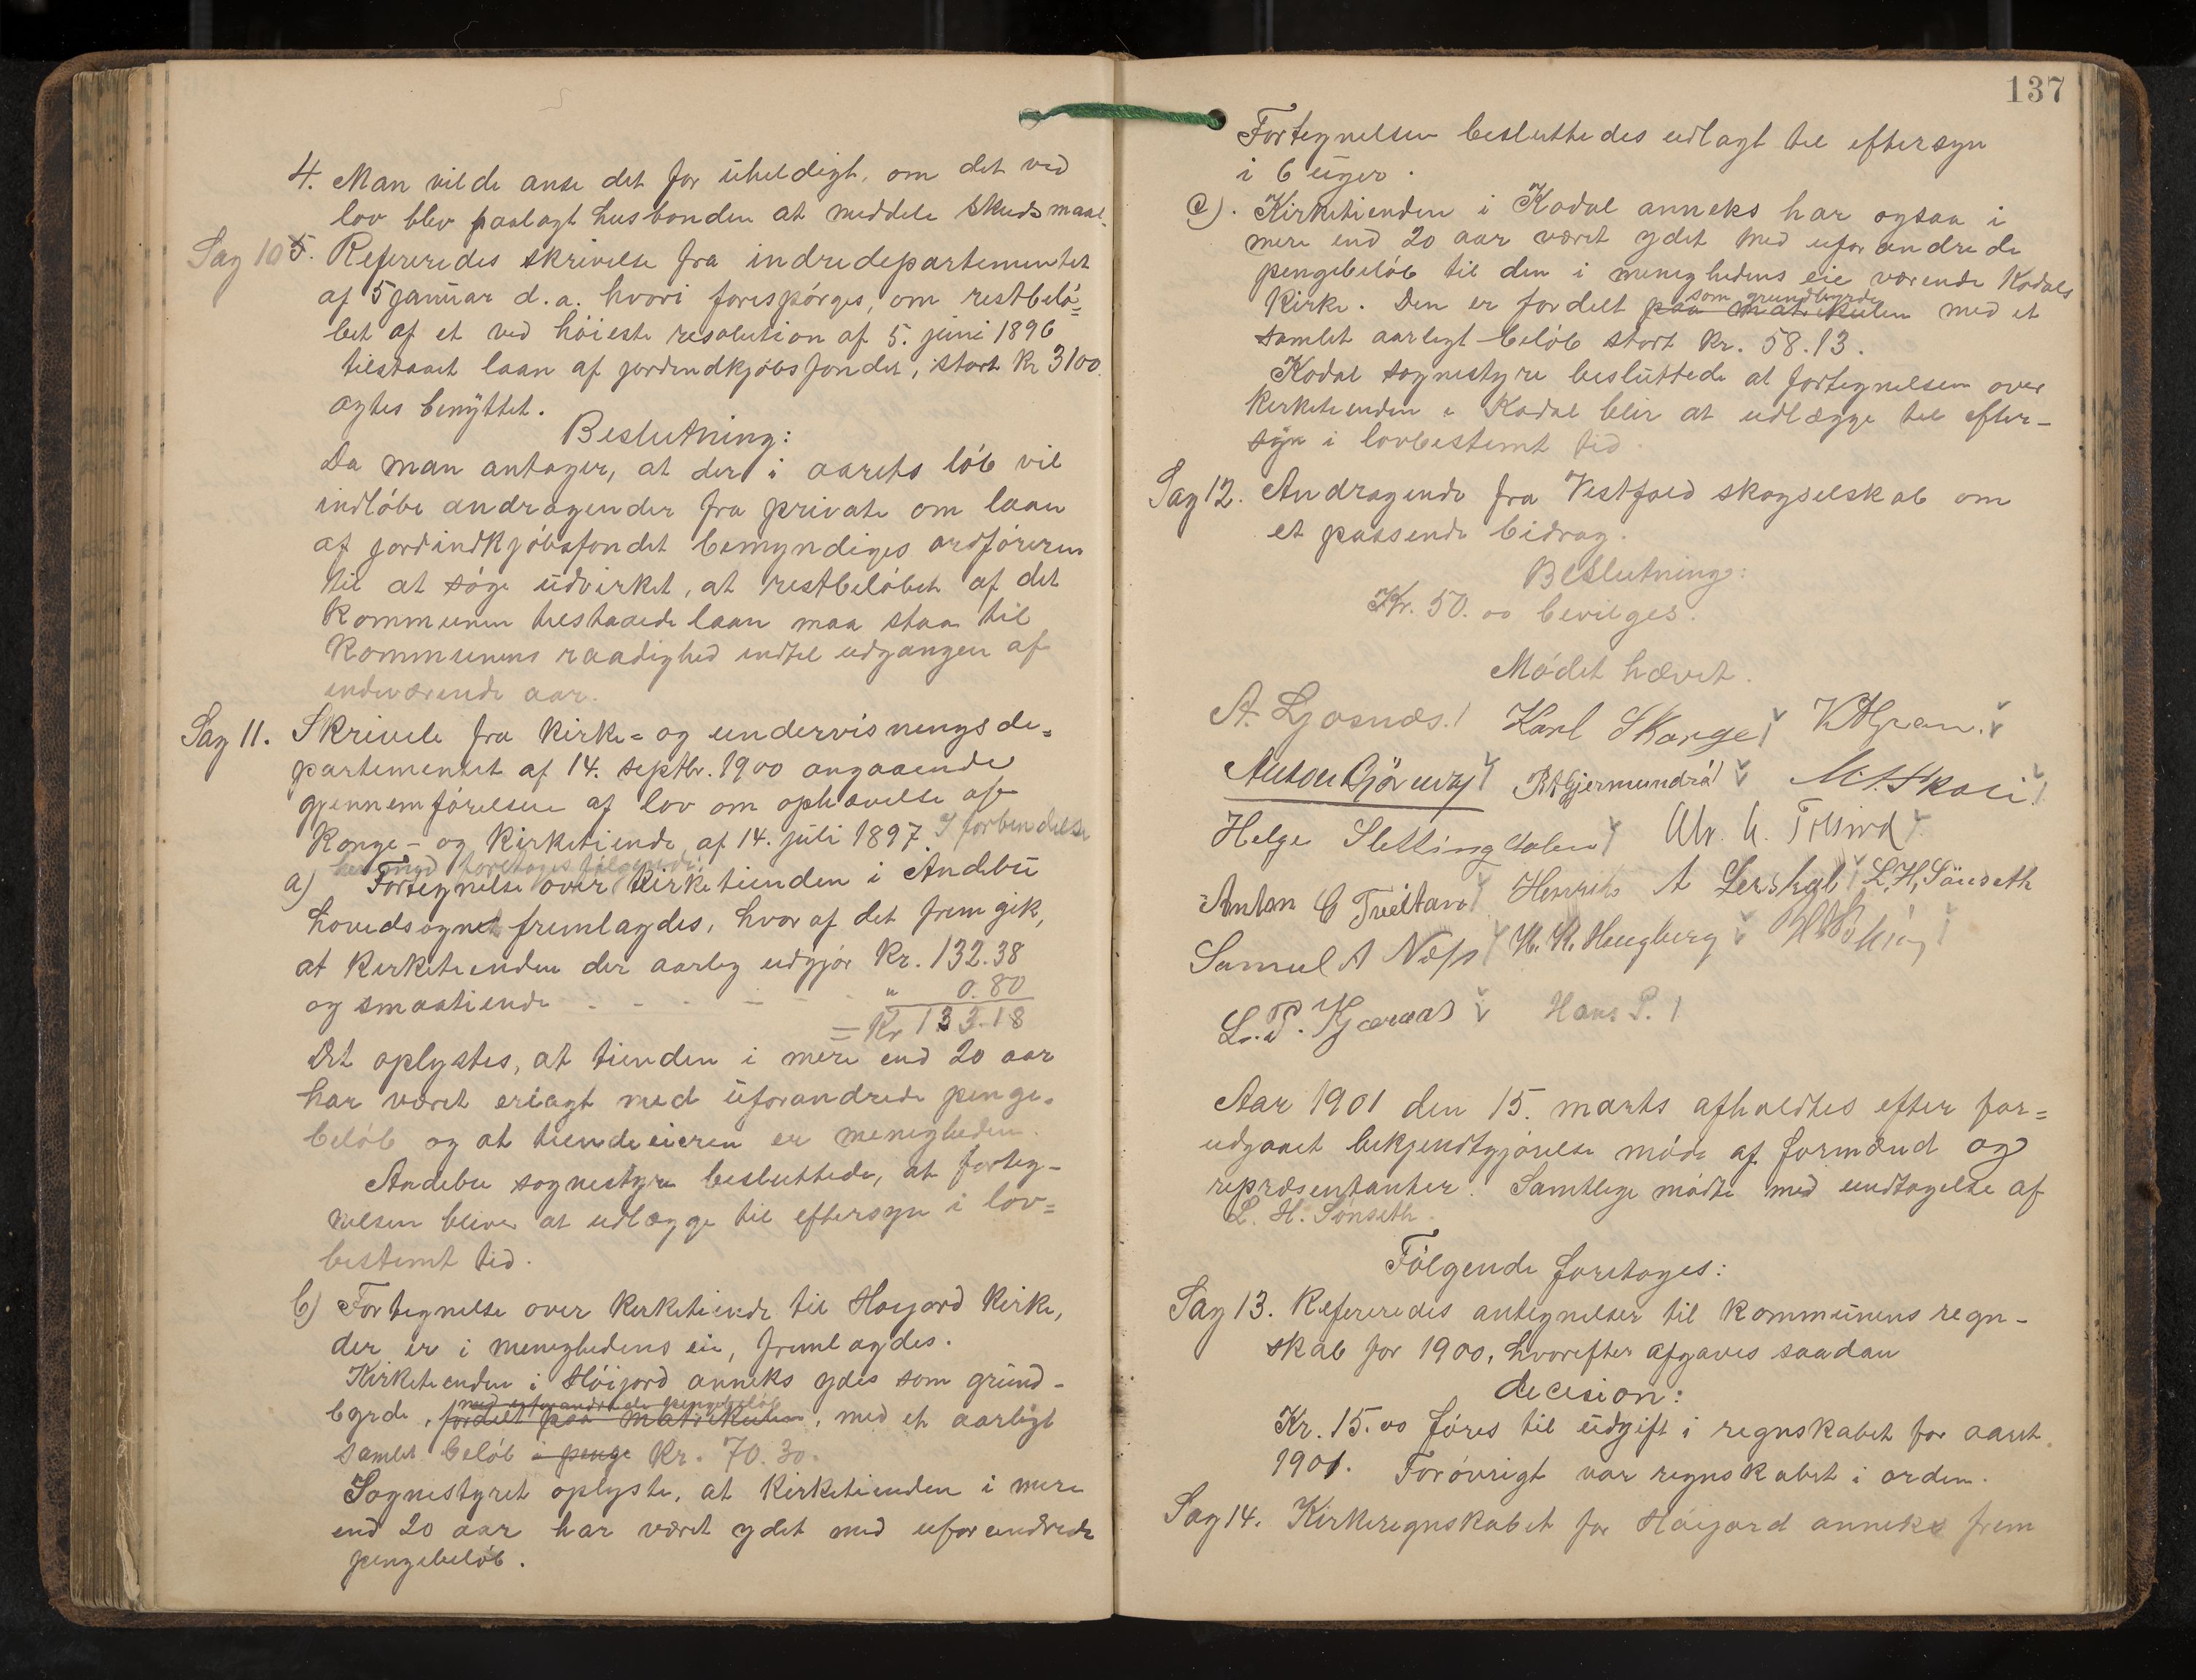 4. Man vilde anse det for uheldigt, om det ved
lov blev paalagt husbonden at meddele skudsmaal.
Sag 10 5. Refereredes skrivelse fra indredepartementet
af 5 januar d.a. hvori forespørges, om restbelø-
bet af et ved høieste resolution af 5. juni 1896
tilstaaet laan af jordindkjøbsfondet, stort kr 3100
agtes benyttet.
Beslutning:
Da man antager, at der i aarets løb vil
indløbe andragender fra private om laan
af jordindkjøbsfondet bemyndiges ordføreren
til at søge udvirket, at restbeløbet af det
kommunen tilstaaede laan maa staa til
kommunens raadighed indtil udgangen af
indeværende aar.
Sag 11. Skrivele fra kirke- og undervisningsde-
partementet af 14. septbr. 1900 angaaende
gjennemførelsen af lov om ophævelse af
konge- og kirketiende af 14. juli 1897. I forbindelse
hermed foretoges følgende:
a) Fortegnelse over kirketienden i Andebu
hovedsognet fremlagdes, hvoraf det fremgik,
at kirketienden der aarlig udgjør kr. 132.38
og smaatiende - - - - - " 0.80
= Kr 133.18
Det oplystes, at tienden i mere end 20 aar
har været erlagt med uforandrede penge-
beløb og at tiendeeieren er menigheden.
Andebu sognestyre besluttede, at forteg-
nelsen bliver at udlægge til eftersyn i lov-
bestemt tid.
b) Fortegnelse over kirketiende til Høijord kirke,
der er i menighedens eie, fremlagdes.
Kirketienden i Høijord anneks ydes som grund-
med uforandrede pengebeløb
byrde, fordelt paa matrikulen, med et aarligt
samlet beløb i penge kr. 70.30.
Sognestyret oplyste, at kirketienden i mere
end 20 aar har været ydet med uforandrede
pengebeløb.
137
Fortegnelsen besluttedes udlagt til eftersyn
i 6 uger.
c). Kirketienden i Kodal anneks har ogsaa i
mere end 20 aar været ydet med uforandrede
pengebeløb til den i menighedens eie værende Kodals
som grundbyrde
kirke. Den er fordelt paa matrikulen med et
samlet aarligt beløb stort kr. 58.13.
Kodal sognestyre besluttede at fortegnelsen over
kirketienden i Kodal blir at udlægge til efter-
syn i lovbestemt tid.
Sag 12. Andragende fra Vestfold skogselskab om
et passende bidrag.
Beslutning:
Kr. 50.00 bevilges.
Mødet hævet.
A. Ljosnæs. Karl Skarge
Anton Gjermundrød M. A. Skoli
Helge Slettingdalen
Anton C Trelstad Henrik A Lerskal L, H, Sønseth
Samuel A Næss H. K. Haugberg
L. P. Kjæraas Hans P.
Aar 1901 den 15. marts afholdtes efter for-
udgaaet bekjendtgjørelse møde af formænd og
repræsentanter. Samtlige mødte med undtagelse af
L. H. Sønseth.
Følgende foretoges:
Sag 13. Refereredes antegnelser til kommunens regn-
skab for 1900, hvorefter afgaves saadan
decision:
Kr. 15.00 føres til udgift i regnskabet for aaret
1901. Forøvrigt var regnskabet i orden.
Sag 14. Kirkeregnskabet for Høijord anneks frem